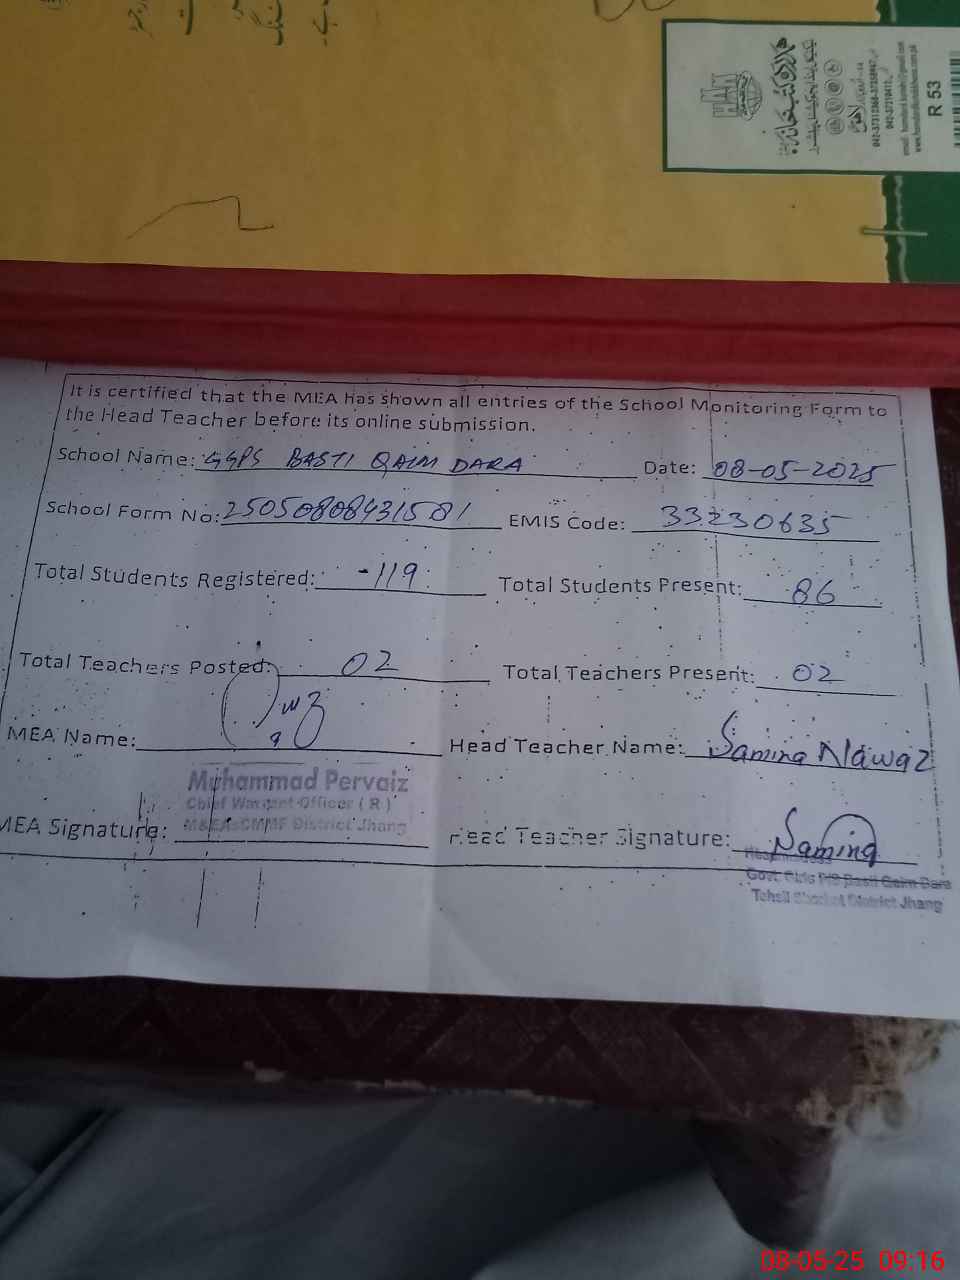 R 53
It is certified that the MEA has shown all entries of the School Monitoring Form to
the Head Teacher before its online submission.
School Name: GGPS BASTI QAIM DARA Date: 08-05-2025
School Form No: 25050808431581 EMIS Code: 33230635
Total Students Registered: -119 Total Students Present: 86
Total Teachers Posted: 02 Total Teachers Present: 02
MEA Name: Head Teacher Name: Samina Nawaz
Muhammad Pervaiz
Chief Warrant Officer ( R )
District Jhang
MEA Signature: Head Teacher Signature: Samina
Govt. Girls P/S Basti Qaim Dara
Tehsil District Jhang
08-05-25 09:16